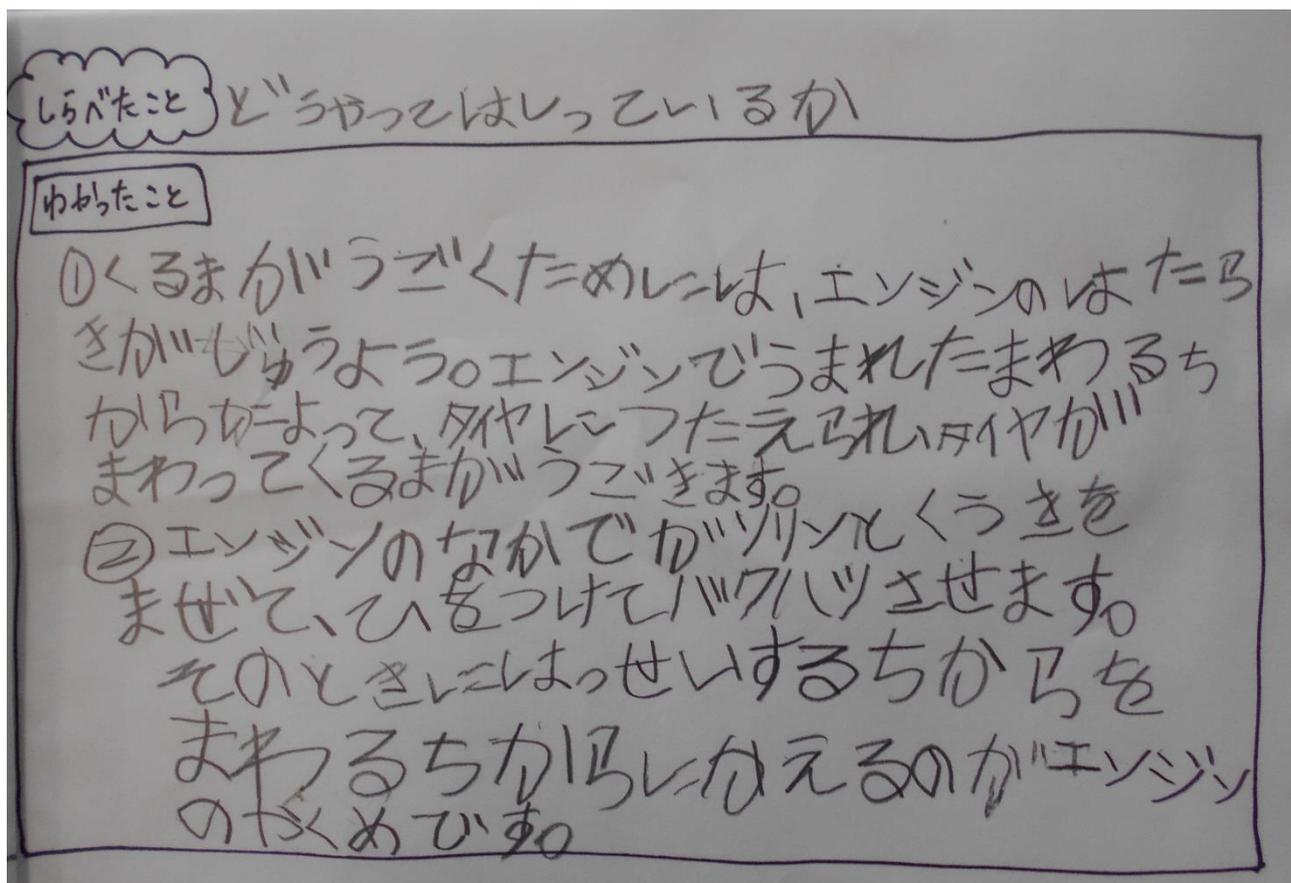 しらべたこと どうやってはしっているか
わかったこと
①くるまがうごくためには、エンジンのはたら
きがじゅうよう。エンジンでうまれたまわるち
からによって、タイヤにつたえられ、タイヤが
まわってくるまがうごきます。
②エンジンのなかでガソリンとくうきを
まぜて、ひをつけてバクハツさせます。
そのときにはっせいするちからを
まわるちからにかえるのがエンジン
のやくめです。